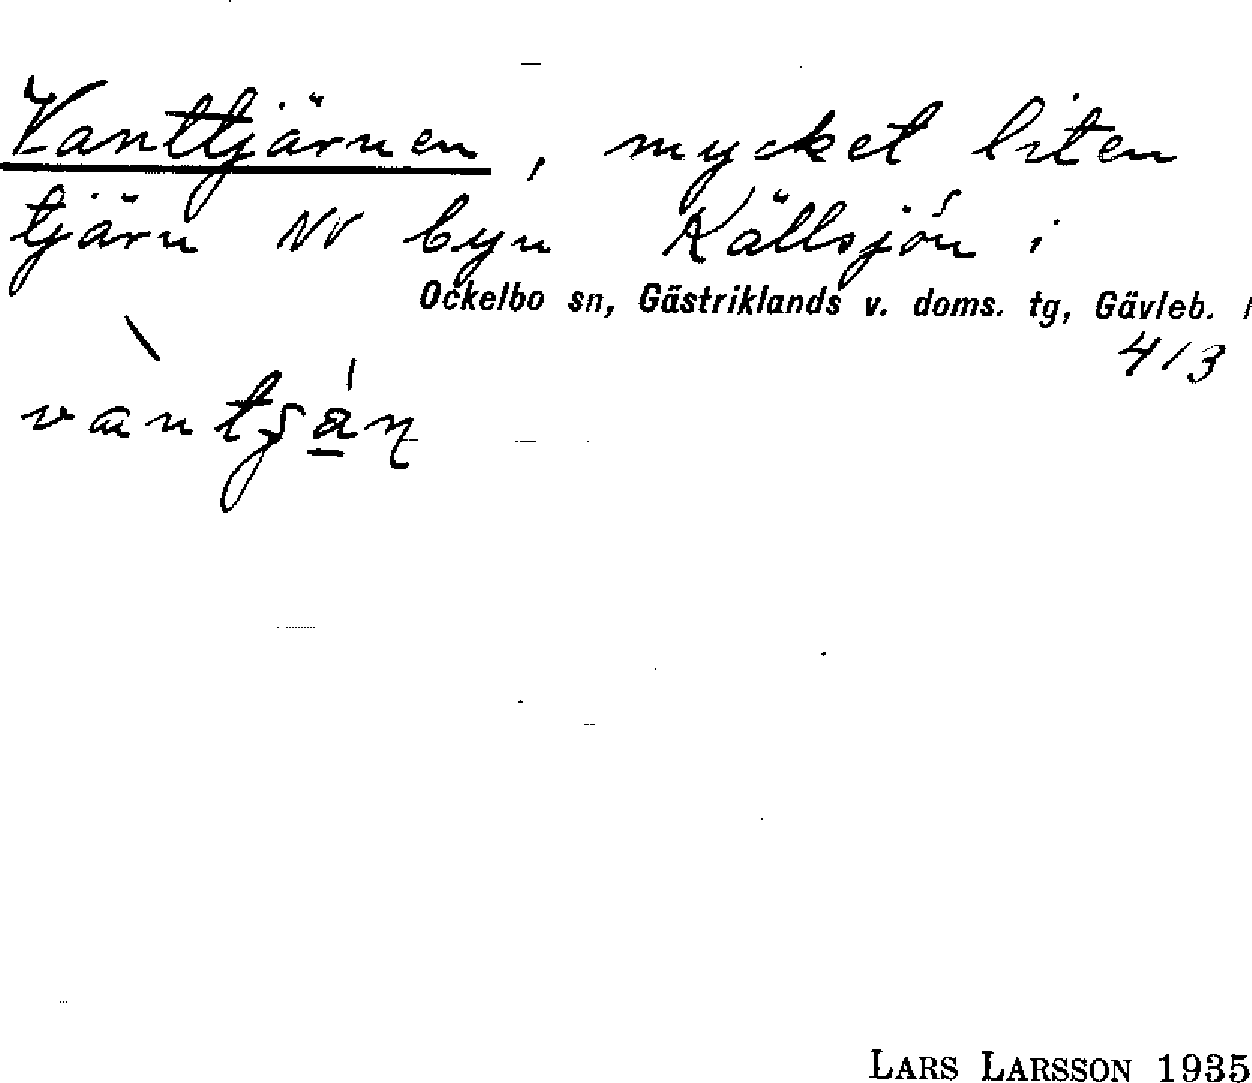 Vanttjärnen, mycket liten
tjärn NV byn Källsjön i
Ockelbo sn, Gästriklands v. doms. tg, Gävleb. l
413
LARS LARSSON 1935